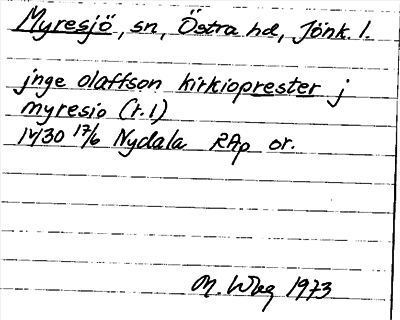 Myresjö, sn, Östra hd, Jönk. l.
jnge olaffson kirkioprester j
myresio (t. 1)
1430 17/6 Nydala RAp or.
M. Wbg 1973